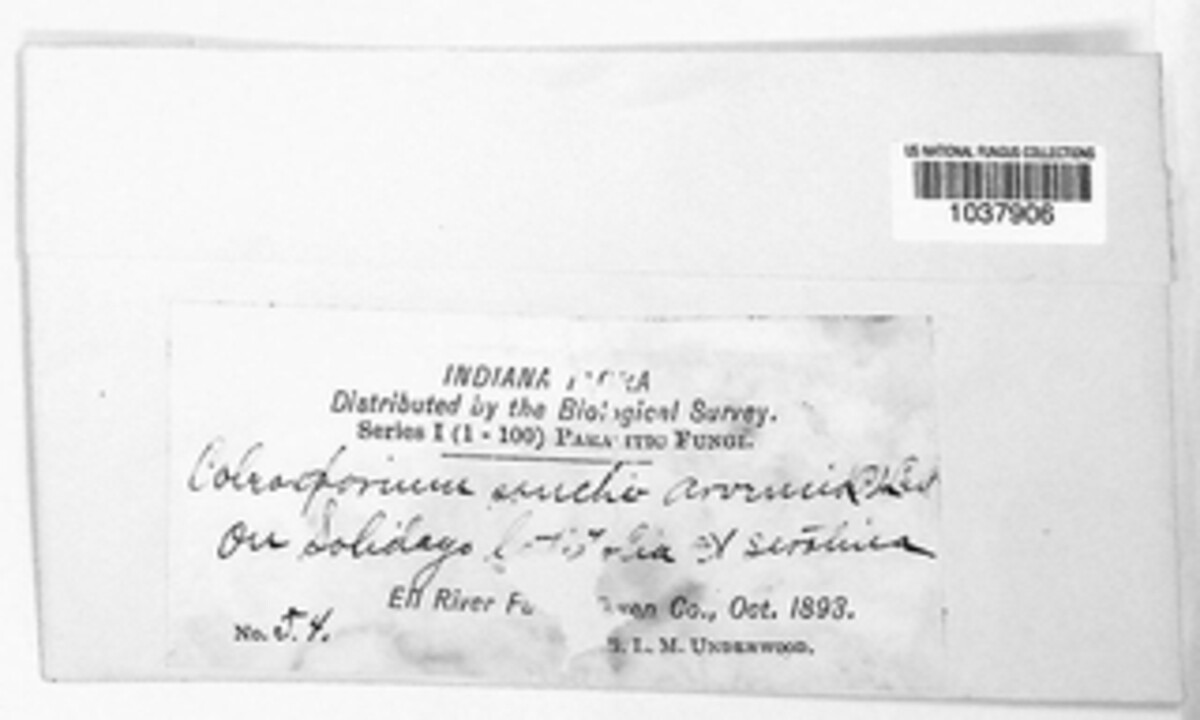 US NATIONAL FUNGUS COLLECTIONS
1037906
INDIANA
Distributed by the Biological Survey.
Series I (1 - 100) PARASITIC FUNGI.
Coleosporium sonchi arvensis
On Solidago serotina
Ell River Co., Oct. 1893.
No. 54. L. M. UNDERWOOD.